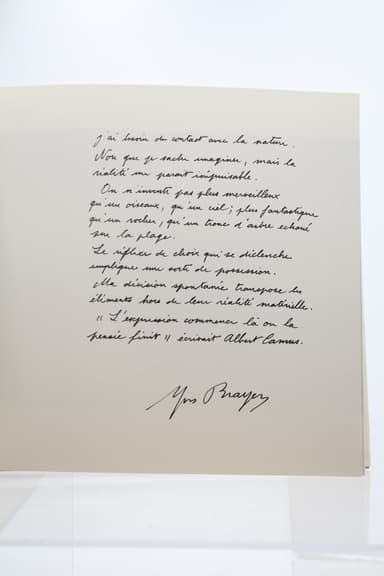 j'ai besoin du contact avec la nature.
Non que je sache imaginer, mais la
réalité me parait inépuisable.
On n'invente pas plus merveilleux
qu'un oiseau, qu'un ciel ; plus fantastique
qu'un rocher, qu'un tronc d'arbre echoué
sur la plage.
Le réflexe de choix qui se déclenche
implique une sorte de possession.
Ma décision spontanée transpose les
éléments hors de leur réalité matérielle.
"L'expression commence là ou la
pensée finit" écrivait Albert Camus.
Yves Brayer